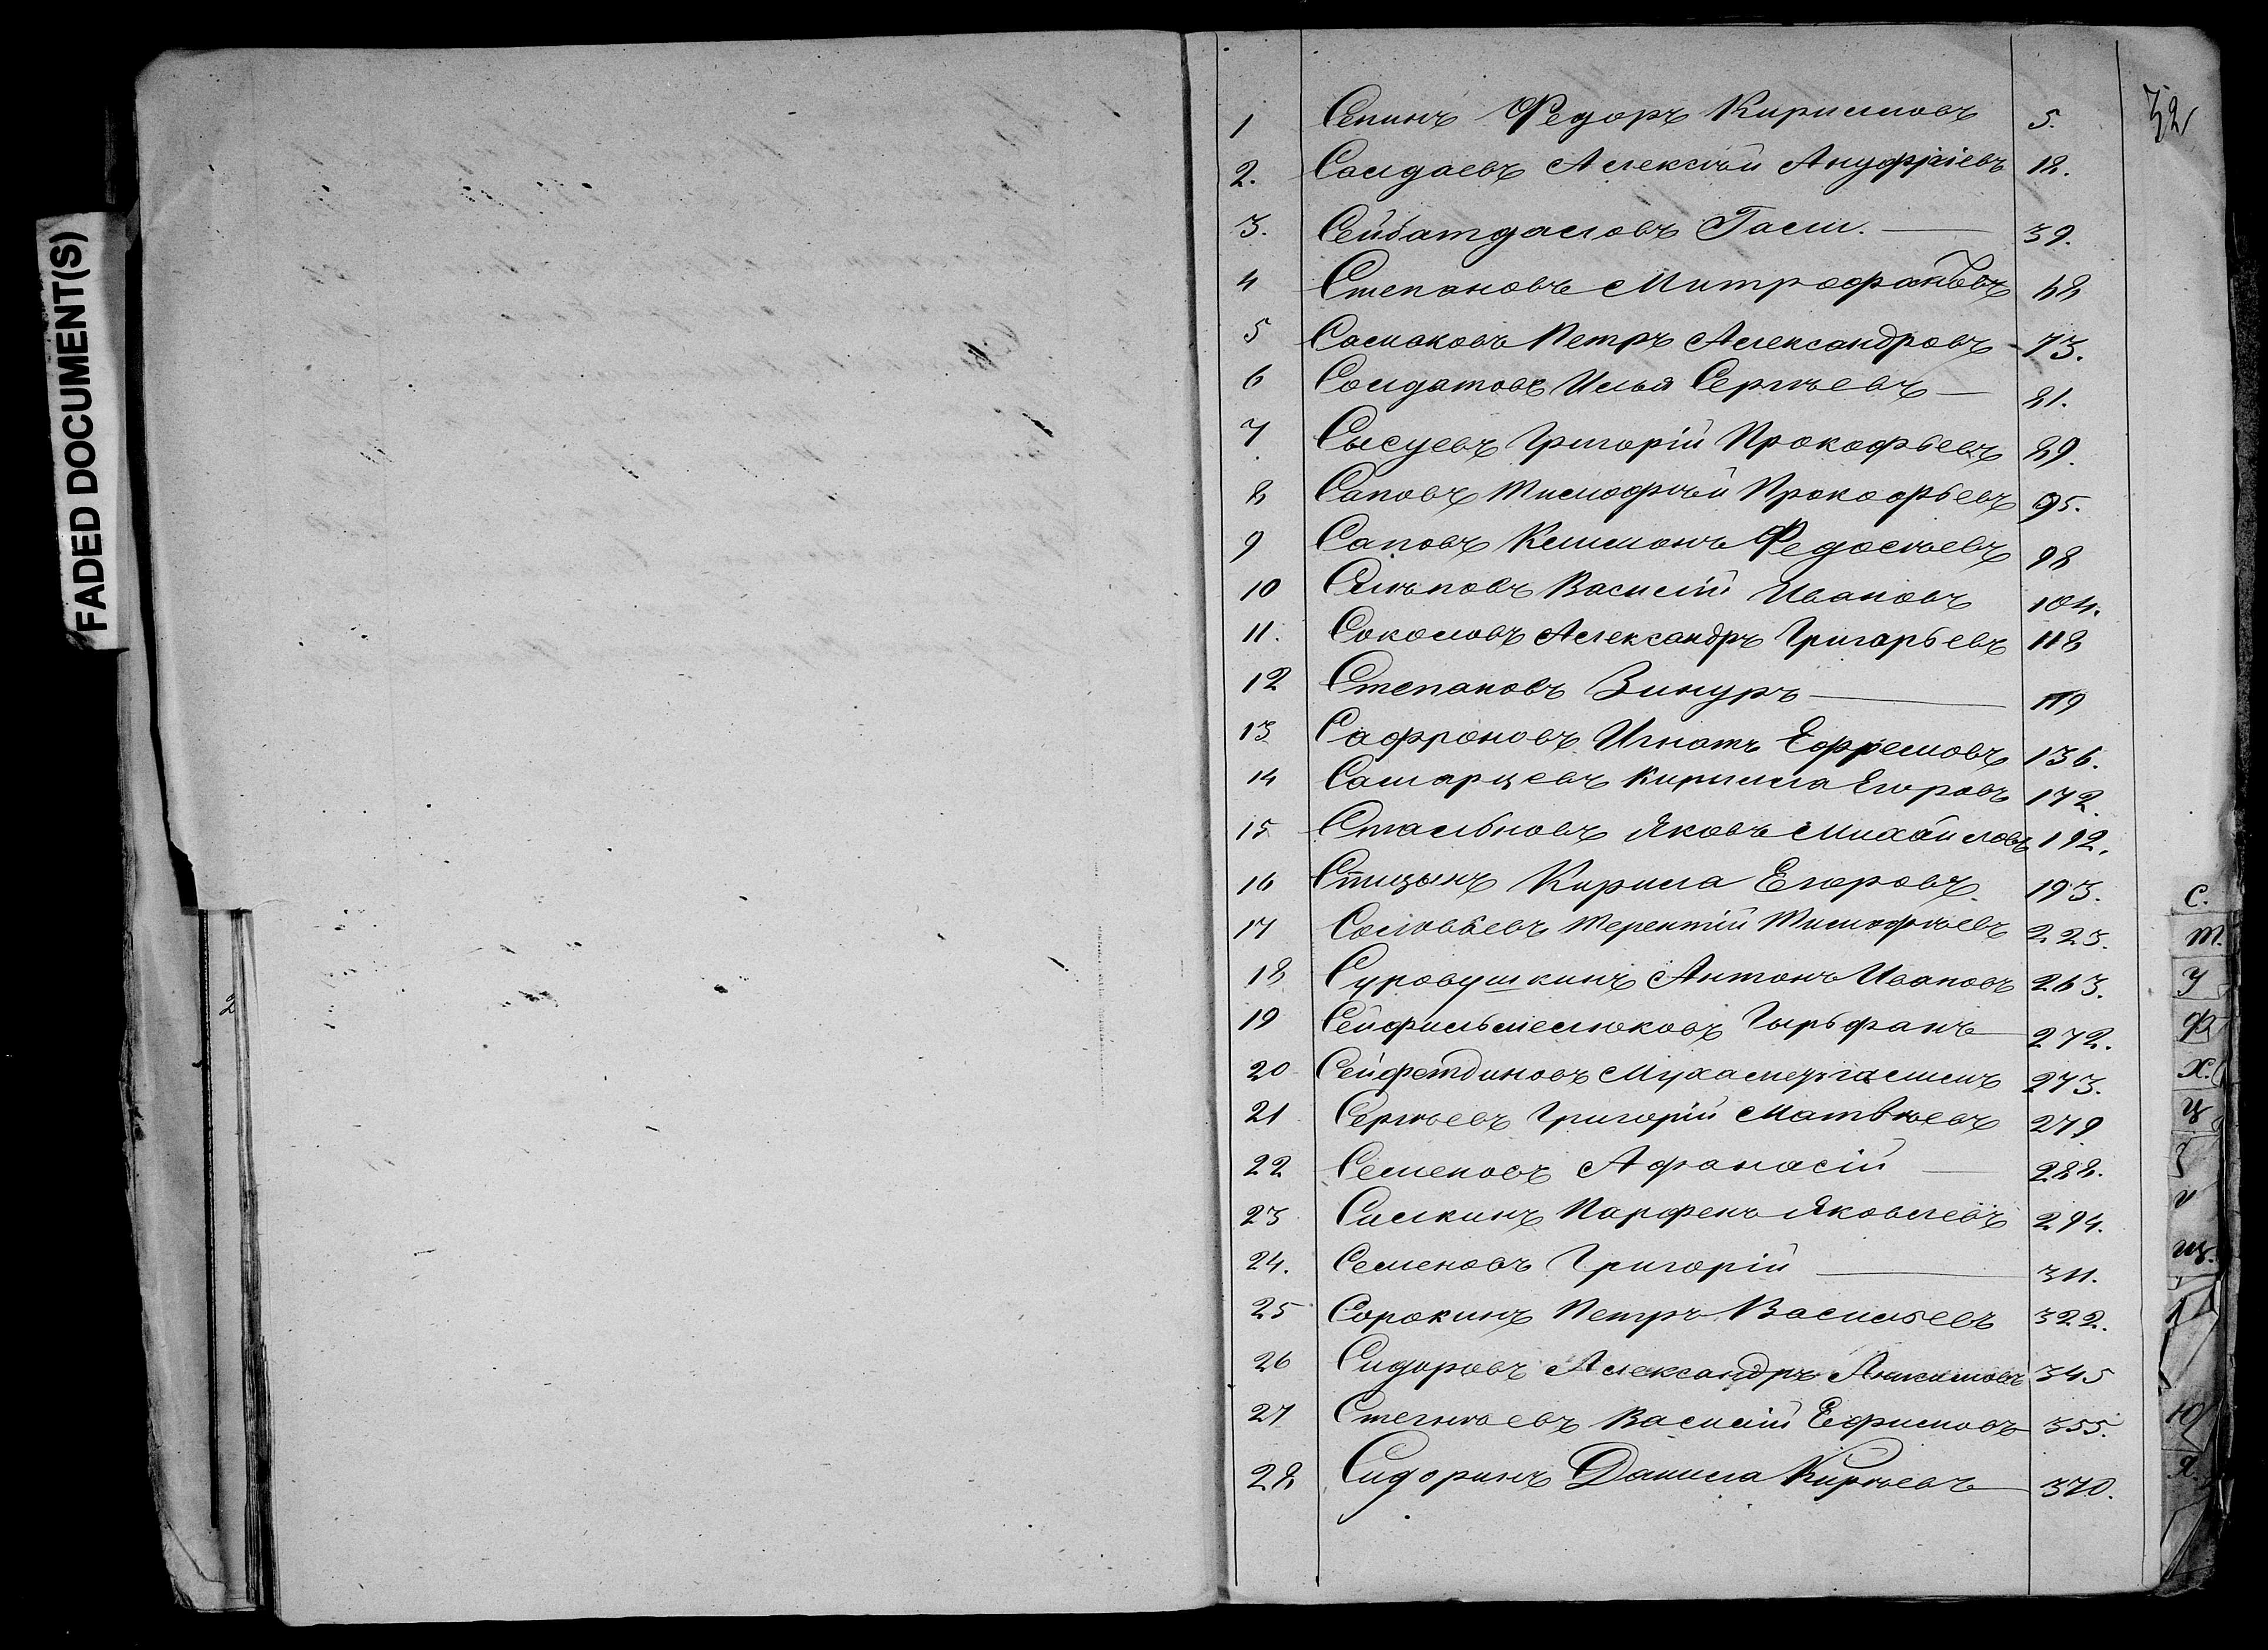 FADED DOCUMENT(S)
32
1 Сепинъ Федоръ Кириловъ 5.
2. Солдаевъ Алексѣй Ануфріевъ 18.
3. Сейбатдаловъ Гали. — 39.
4 Степановъ Митрофанъ 68
5 Салмаковъ Петръ Александровъ 73.
6 Солдатовъ Илья Сергѣевъ — 81.
7. Сысуевъ Григорій Прокофьевъ 89.
8 Саповъ Тимофѣй Прокофьевъ 95.
9 Саповъ Климонъ Федосѣевъ 98
10 Слѣповъ Василій Ивановъ 104.
11. Соколовъ Александръ Григорьевъ 118
12 Степановъ Винуръ — 119
13 Сафроновъ Игнатъ Ефремовъ 136.
14 Самарцевъ Кирилла Егоровъ 172.
15 Стальновъ Яковъ Михайловъ 192.
16 Спицынъ Кирила Егоровъ 193.
17 Соловьевъ Терентій Тимофѣевъ 223.
18 Суровушкинъ Антонъ Ивановъ 263.
19 Сейфильмелюковъ Гырьфанъ 272.
20 Сейфетдиновъ 273.
21 Сергѣевъ Григорій Матвѣевъ 279
22 Семеновъ Афанасій — 288.
23 Силкинъ Парфенъ Яковлевъ 294.
24. Семеновъ Григорій — 311.
25 Сорокинъ Петръ Васильевъ 322.
26 Сидоровъ Александръ 345
27 Василій Ефимовъ 355.
28 Сидоринъ Данила Кирѣевъ 370.
С.
Т.
У
Ф
Х.
Ц
Ч
Щ.
Ю
Я.
2